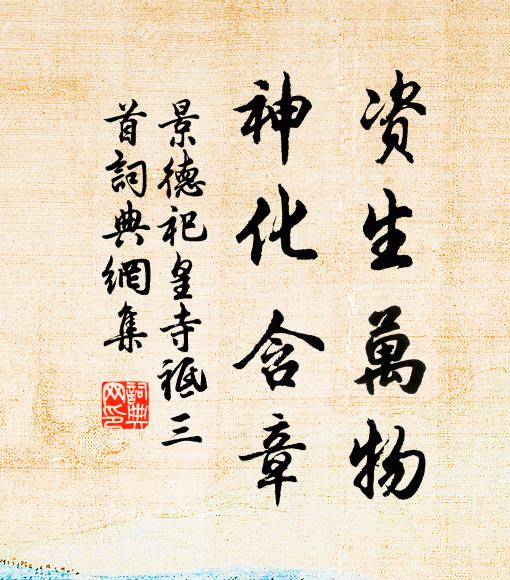 資生萬物
神化含章
景德祀皇寺祗三
首詞典網集
詞典網印